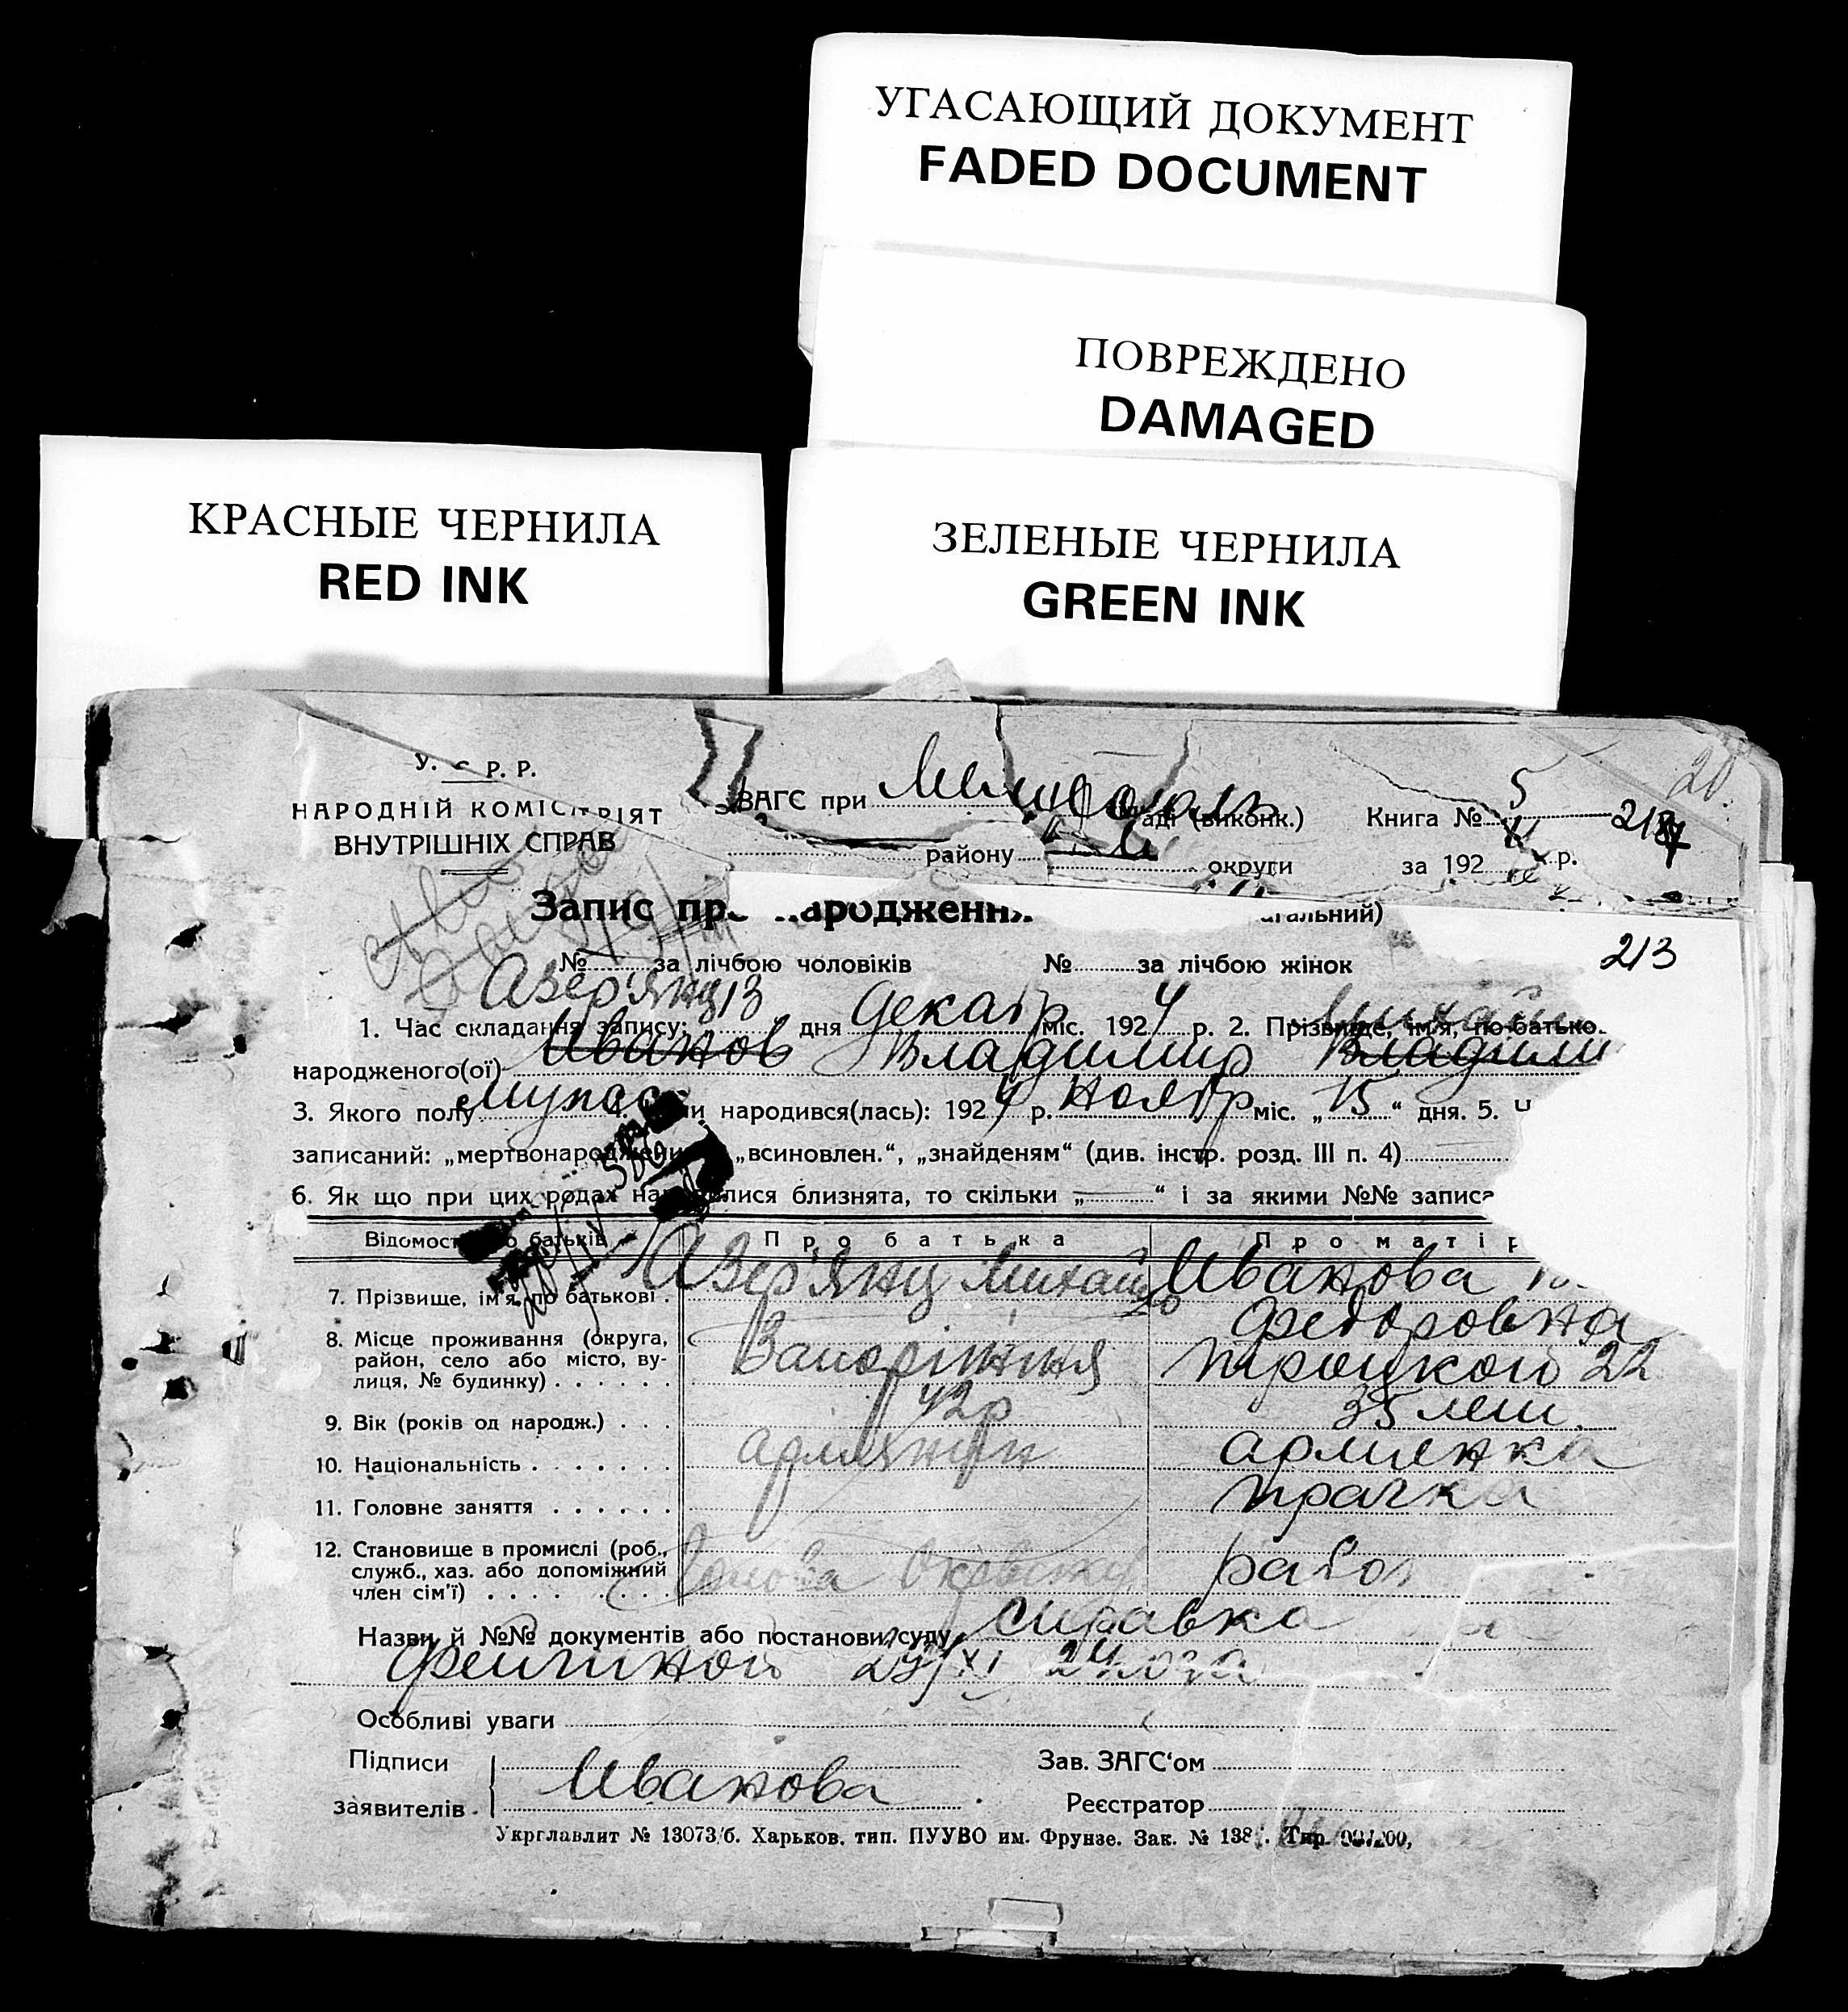 УГАСАЮЩИЙ ДОКУМЕНТ
FADED DOCUMENT
ПОВРЕЖДЕНО
DAMAGED
КРАСНЫЕ ЧЕРНИЛА
RED INK
ЗЕЛЕНЫЕ ЧЕРНИЛА
GREEN INK
20.
У. С. Р. Р.
НАРОДНІЙ КОМІСАРІЯТ
ВНУТРІШНІХ СПРАВ
ЗАГС при Мелитополь раді (виконк.) Книга № 5
району округи за 192 р.
Запис про народження
213
№ за лічбою чоловіків № за лічбою жінок
Азер'янц Михайл
1. Час складання запису: „13 дня декабр міс. 1924 р. 2. Прізвище, ім'я, по-батько
народженого(ої) Иванов Владимир Владими
3. Якого полу мужск 4. народився(лась): 1924 р. Ноябр міс. „15“ дня. 5.
записаний: „мертвонароджени „всиновлен.“, „знайденям“ (див. інстр. розд. III п. 4)
6. Як що при цих родах народилися близнята, то скільки „—“ і за якими №№ запис
Відомості про батьків Про батька Про матір
7. Прізвище, ім'я, по батькові. Азер'янц Михайло Иванова
Федоровна
8. Місце проживання (округа, район, село або місто, вулиця, № будинку) Запоріжжя Троцкого 22
9. Вік (років од народж.) 42р 35 лет.
10. Національність армянин армянка
11. Головне заняття прачка
12. Становище в промислі (роб., служб., хаз. або допоміжний член сім'ї) работ
Назви й №№ документів або постанови суду справка
Фейгиной 24 года
Особливі уваги
Підписи заявителів Иванова
Зав. ЗАГС‘ом
Реєстратор
Укрглавлит № 13073/б. Харьков. тип. ПУУВО им. Фрунзе. Зак. № 138 . Тир.